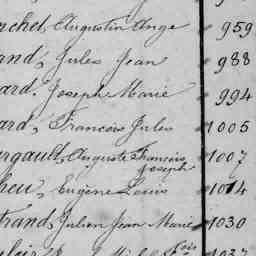 nchel, Augustin Ange 959
and, Jules Jean 988
ard, Joseph Marie 994
ard, François Jules 1005
rgault, Auguste François Joseph 1007
heu, Eugène Louis 1014
trand, Julien Jean Marie 1030
1037